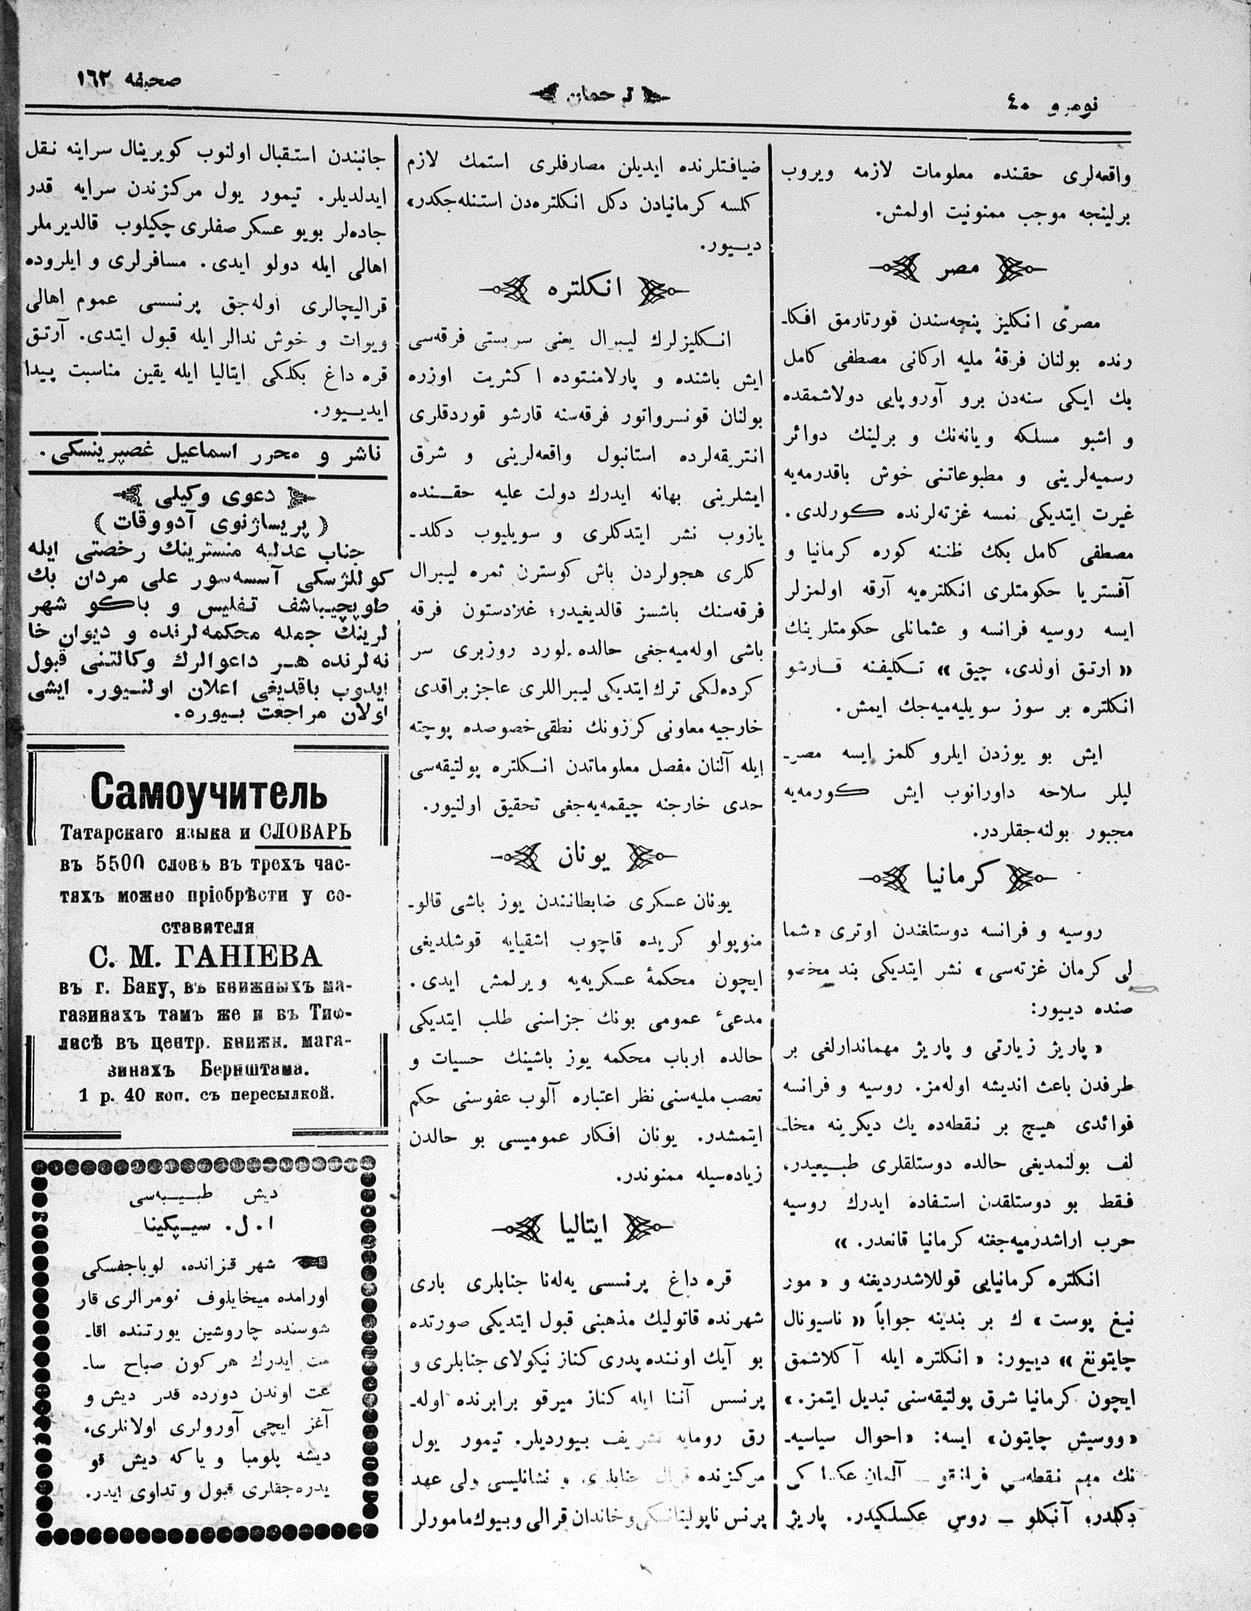 نومرو ٤٠
ترجمان
صحيفه ١٦٢
واقعه‌لرى حقنده معلومات لازمه ويروب
برلينجه موجب ممنونيت اولمش.
مصر
مصرى انكليز پنچه‌سندن قورتارمق افكا-
رنده بولنان فرقهٔ مليه اركانى مصطفى كامل
بك ايكى سنه‌دن برو آوروپايى دولاشمقده
و اشبو مسلكه ويانه‌نك و برلينك دوائر
رسميه‌لرينى و مطبوعاتنى خوش باقدرمه‌يه
غيرت ايتديكى نمسه غزته‌لرنده كورلدى.
مصطفى كامل بكك ظننه كوره كرمانيا و
آفستريا حكومتلرى انكلتره‌يه آرقه اولمزلر
ايسه روسيه فرانسه و عثمانلى حكومتلرينك
«ارتق اولدى، چيق» تكليفنه قارشو
انكلتره بر سوز سويليه‌ميه‌جك ايمش.
ايش بو يوزدن ايلرو كلمز ايسه مصر-
ليلر سلاحه داورانوب ايش كورمه‌يه
مجبور بولنه‌جقلردر.
كرمانيا
روسيه و فرانسه دوستلغندن اوترى «شما
لى كرمان غزته‌سى» نشر ايتديكى بند مخصو
صنده دييور:
«پاريژ زيارتى و پاريژ مهماندارلغى بر
طرفدن باعث انديشه اوله‌مز. روسيه و فرانسه
فوائدى هيچ بر نقطه‌ده يك ديكرينه مخا-
لف بولنمديغى حالده دوستلقلرى طبيعيدر،
فقط بو دوستلقدن استفاده ايدرك روسيه
حرب اراشدرميه‌جغنه كرمانيا قانعدر.»
انكلتره كرمانيايى قوللاشدرديغنه و «مور
نيغ پوست» ك بر بندينه جواباً «ناسيونال
چايتونغ» دييور: «انكلتره ايله آكلاشمق
ايچون كرمانيا شرق پولتيقه‌سنى تبديل ايتمز.»
«ووسيش چايتون» ايسه: «احوال سياسيه-
نك مهم نقطه‌سى فرانقو - آلمان عكسلكى
دكلدر؛ آنكلو - روس عكسلكيدر. پاريژ
ضيافتلرنده ايديلن مصارفلرى استمك لازم
كلسه كرمانيادن دكل انكلتره‌دن استنله‌جكدر»
دييور.
انكلتره
انكليزلرك ليبرال يعنى سربستى فرقه‌سى
ايش باشنده و پارلامنتوده اكثريت اوزره
بولنان قونسرواتور فرقه‌سنه قارشو قوردقلرى
انتريقه‌لرده استانبول واقعه‌لرينى و شرق
ايشلرينى بهانه ايدرك دولت عليه حقنده
يازوب نشر ايتدكلرى و سويليوب دكلد-
كلرى هجولردن باش كوسترن ثمره ليبرال
فرقه‌سنك باشسز قالديغيدر؛ غلادستون فرقه
باشى اوله‌ميه‌جغى حالده.لورد روزبرى سر
كرده‌لكى ترك ايتديكى ليبراللرى عاجز براقدى
خارجيه معاونى كرزونك نطقى خصوصده پوچته
ايله آلنان مفصل معلوماتدن انكلتره پولتيقه‌سى
حدى خارجنه چيقمه‌يه‌جغى تحقيق اولنيور.
يونان
يونان عسكرى ضابطانندن يوز باشى قالو-
منوپولو كريده قاچوب اشقيايه قوشلديغى
ايچون محكمهٔ عسكريه‌يه ويرلمش ايدى.
مدعىٔ عمومى بونك جزاسنى طلب ايتديكى
حالده ارباب محكمه يوز باشينك حسيات و
تعصب مليه‌سنى نظر اعتباره آلوب عفوسنى حكم
ايتمشدر. يونان افكار عموميسى بو حالدن
زياده‌سيله ممنوندر.
ايتاليا
قره داغ پرنسسى يه‌له‌نا جنابلرى بارى
شهرنده قاتوليك مذهبنى قبول ايتديكى صورتده
بو آيك اوننده پدرى كناز نيكولاى جنابلرى و
پرنسس آننا ايله كناز ميرقو برابرنده اوله-
رق رومايه تشريف بيورديلر. تيمور يول
مركزنده قرال جنابلرى و نشانليسى ولى عهد
پرنس ناپوليتانسكى و خاندان قرالى و بيوك مامورلر
جانبندن استقبال اولنوب كويرينال سراينه نقل
ايدلديلر. تيمور يول مركزندن سرايه قدر
جاده‌لر بويو عسكر صفلرى چكيلوب قالديرملر
اهالى ايله دولو ايدى. مسافرلرى و ايلروده
قراليچالرى اوله‌جق پرنسسى عموم اهالى
ويرات و خوش ندالر ايله قبول ايتدى. آرتق
قره داغ بكلكى ايتاليا ايله يقين مناسبت پيدا
ايدييور.
ناشر و محرر اسماعيل غصپرينسكى.
دعوى وكيلى
(پريساژنوى آدووقات)
جناب عدليه منسترينك رخصتى ايله
كوللژسكى آسسه‌سور على مردان بك
طوپچيباشف تفليس و باكو شهر
لرينك جمله محكمه‌لرنده و ديوان خا
نه‌لرنده هر داعوالرك وكالتنى قبول
ايدوب باقديغى اعلان اولنيور. ايشى
اولان مراجعت بيوره.
Самоучитель
Татарскаго языка и СЛОВАРЬ
въ 5500 словъ въ трехъ час-
тяхъ можно пріобрѣсти у со-
ставителя
С. М. ГАНІЕВА
въ г. Баку, въ книжныхъ ма-
газинахъ тамъ же и въ Тиф-
лисѣ въ центр. книжн. мага-
зинахъ Бернштама.
1 р. 40 коп. съ пересылкой.
ديش طبيبه‌سى
ا. ل. سيپكينا
شهر قزانده، لوباجفسكى
اورامده ميخايلوف نومرالرى قار
شوسنده چاروشين يورتنده اقا-
مت ايدرك هر كون صباح سا-
عت اوندن دورده قدر ديش و
آغز ايچى آورولرى اولانلرى،
ديشه پلومبا و ياكه ديش قو
يدره‌جقلرى قبول و تداوى ايدر.